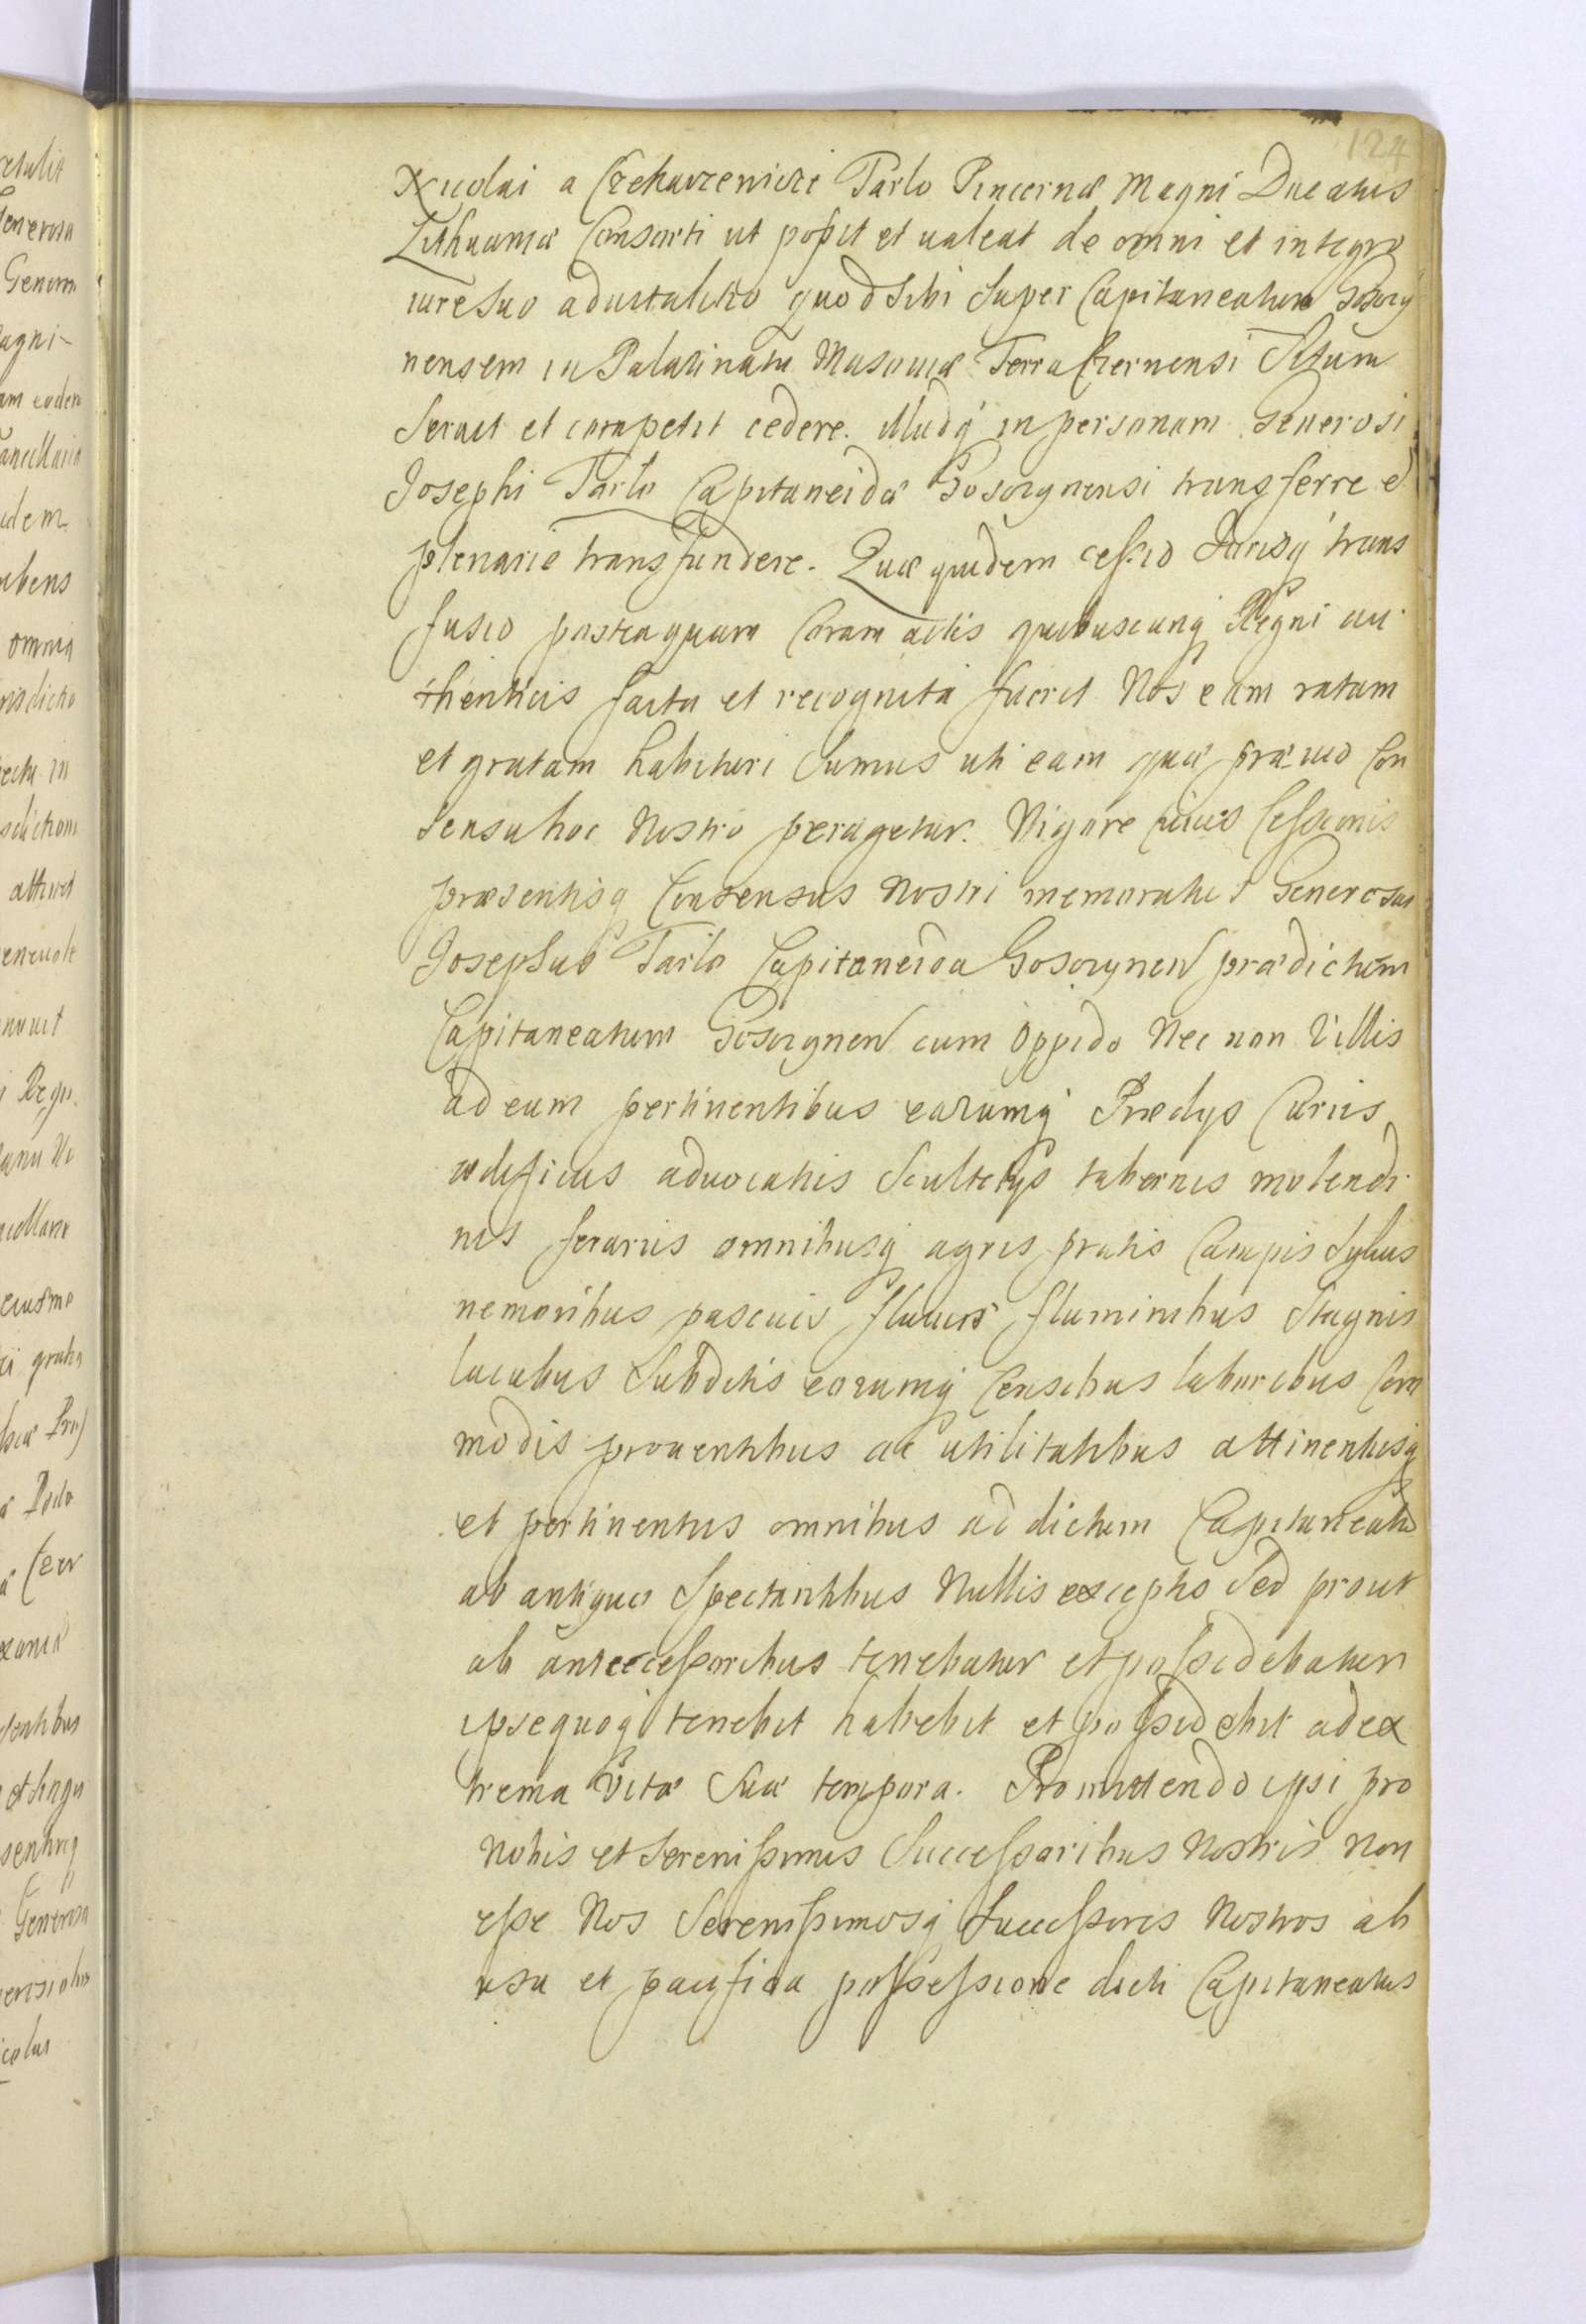 124
Nicolai a Czekarzewicze Tarlo Pincernæ Magni Ducatus
Lithuaniæ Consorti ut poßit et ualeat de omni et integro
iure suo aduitalitio quod sibi super Capitaneatum Gosczy
nensem in Palatinatu Masouiæ Terra Czernensi Situm
seruit et competit cedere. Illudq in personam Generosi
Josephi Tarlo Capitaneidæ Gosczynensi transferre et
plenarie transfundere. Quæ quidem ceßio Jurisq trans
fusio posteaquam Coram actis quibuscunq Regni au
thenticis facta et recognita fuerit Nos eam ratam
et gratam habituri Sumus uti eam quæ præuio Con
sensu hoc Nostro peragetur. Vigore cuius Ceßionis
præsentisq Consensus Nostri memoratus Generosus
Josephus Tarlo Capitaneida Gosczynen prædictum
Capitaneatum Gosczynen cum Oppido Nec non Villis
ad eum pertinentibus earumq Prædys Curiis
ædificiis aduocatiis Scultetys tabernis molendi
nis ferariis omnibusq agris pratis Campis Syluis
nemoribus pascuis fluuiis fluminibus Stagnis
lacubus Subditis eorumq Censibus laboribus Com
modis prouentibus ac utilitatibus attinentiisq
et pertinentiis omnibus ad dictum Capitaneatū
ab antiquo Spectantibus Nullis exceptis Sed prout
ab antecceßoribus tenebatur et poßidebatur
ipse quoq tenebit habebit et poßidebit ad ex
trema Vitæ Suæ tempora. Promittendo ipsi pro
Nobis et Serenißimis Succeßoribus Nostris Non
eße Nos Serenißimosq Succeßores Nostros ab
usu et pacifica poßeßione dicti Capitaneatus